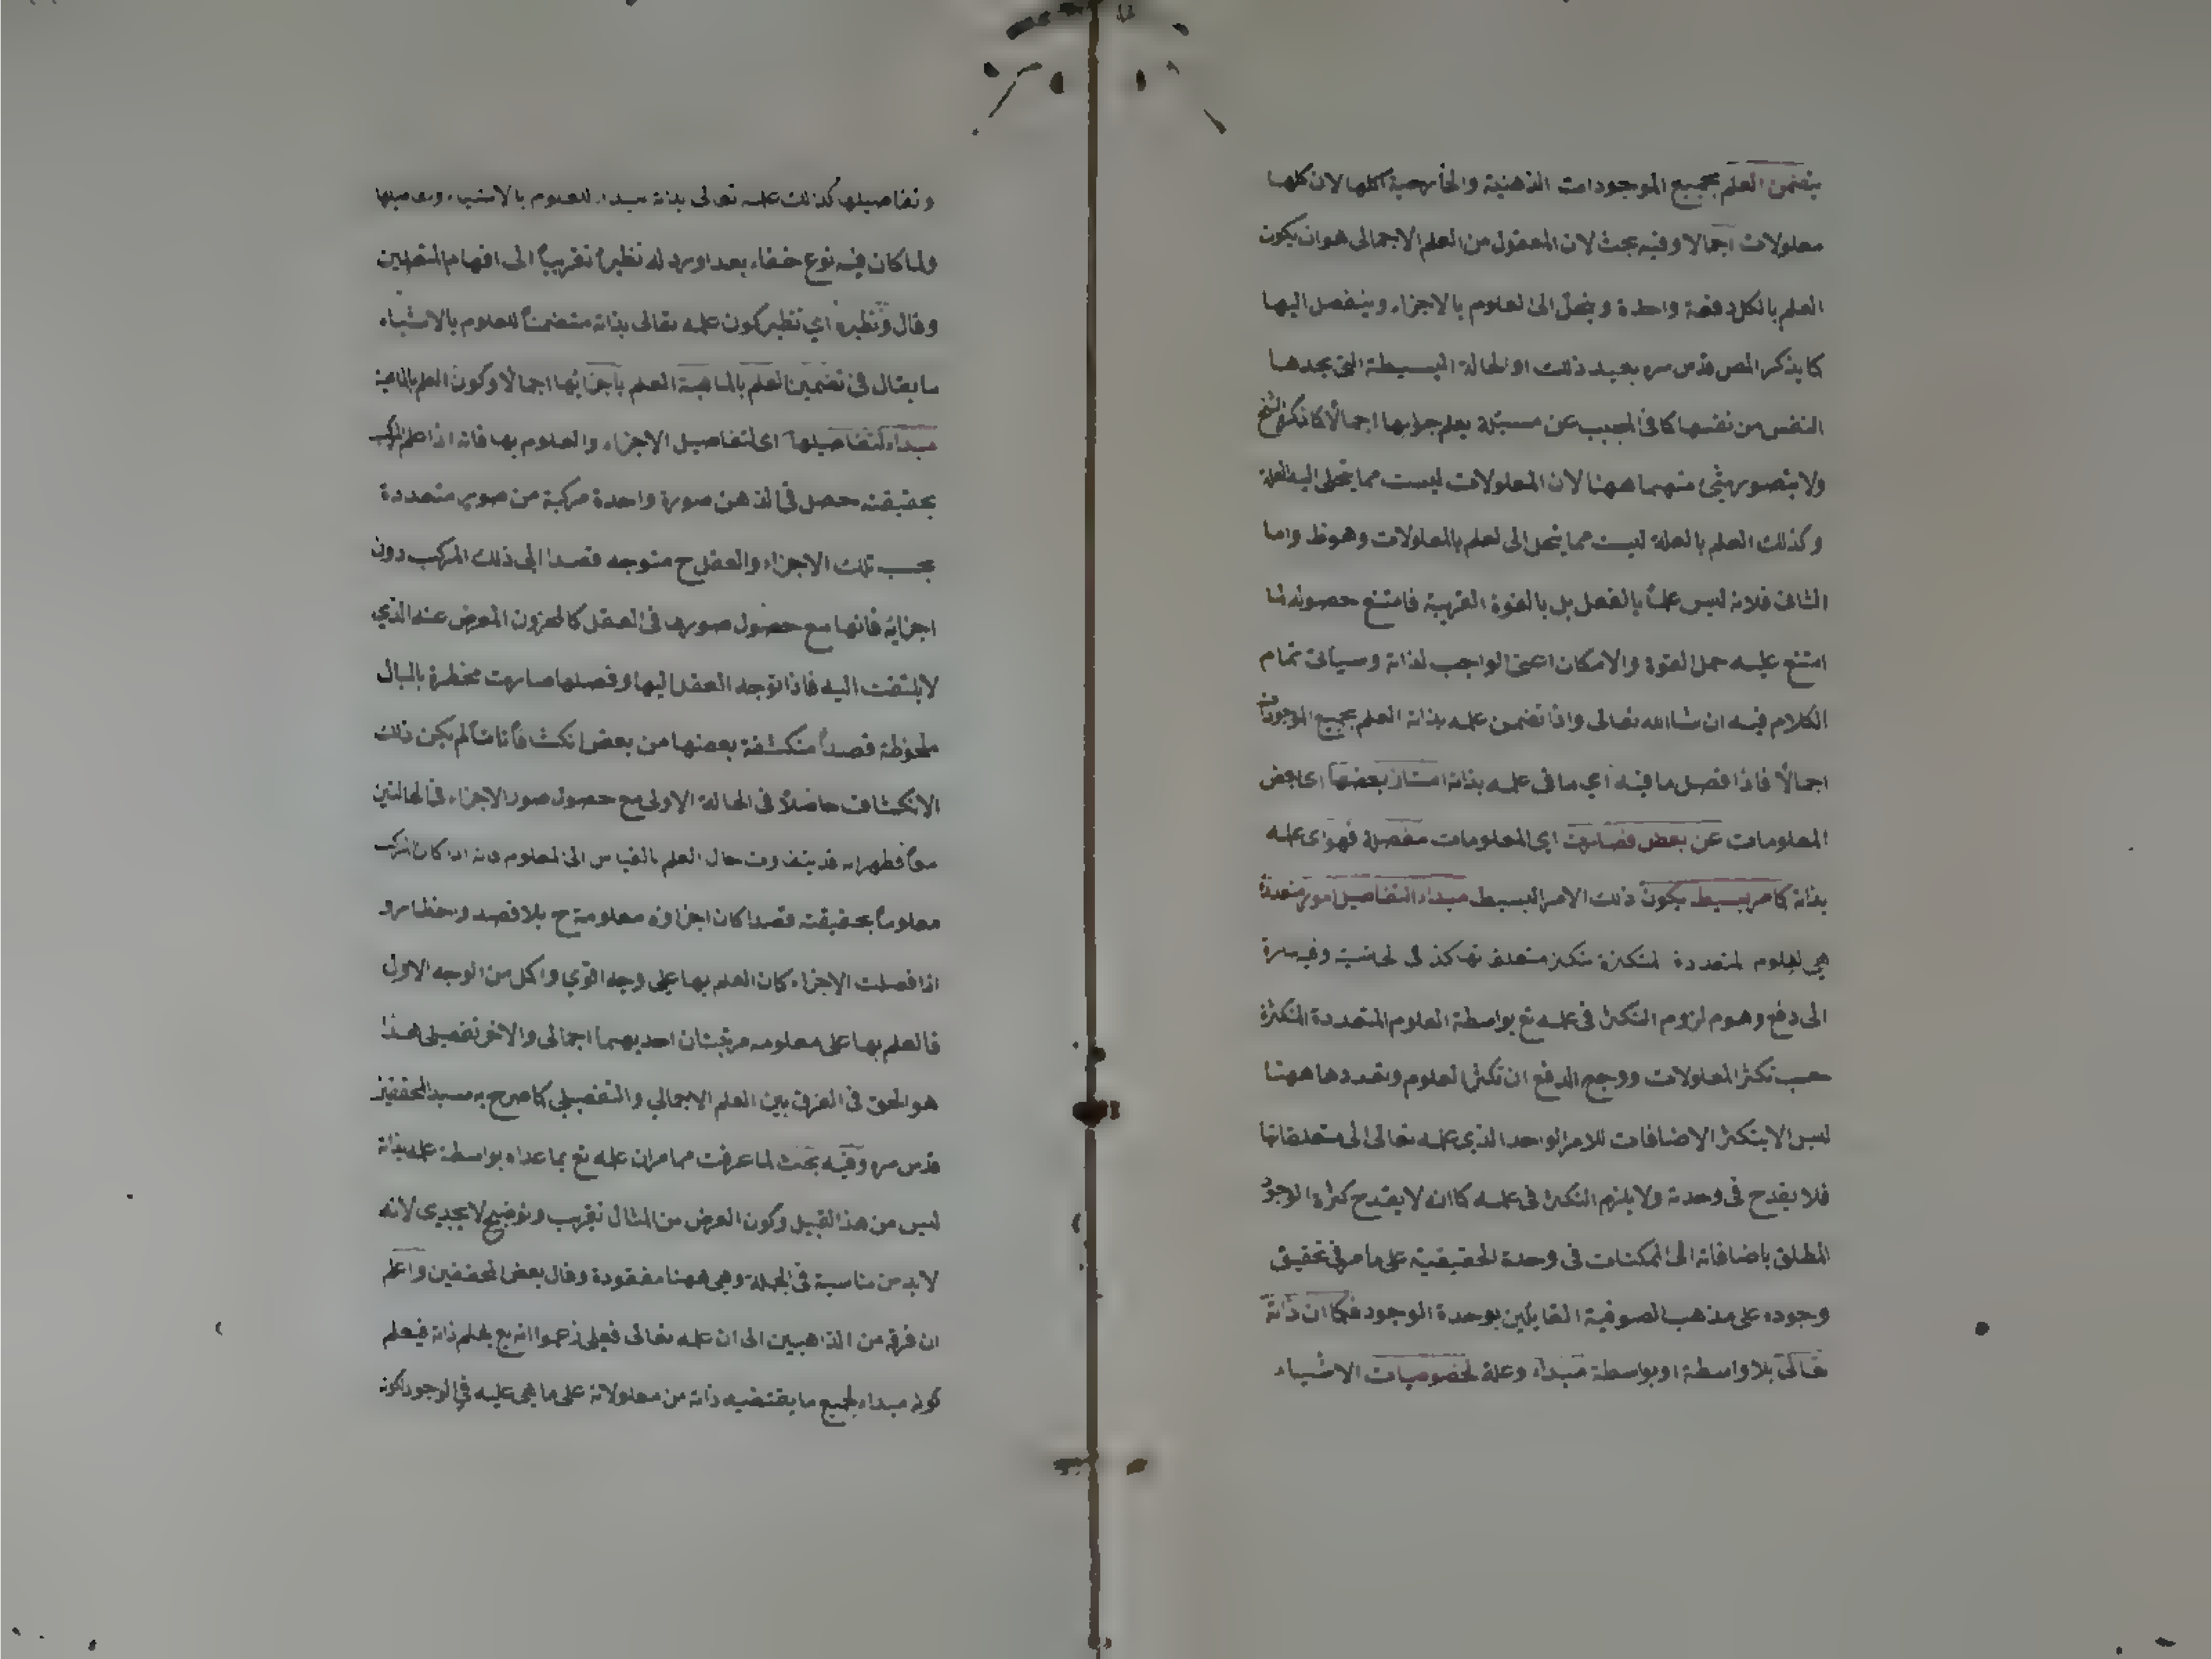 يتضمن العلم بجميع الموجودات الذهنية والخارجية كلها لان كلها
معلولات اجمالا وفيه بحث لان المعقول من العلم الاجمالى هو ان يكون
العلم بالكل دفعة واحدة وينحل الى العلوم بالاجزاء وينفصل اليها
كما يذكر المص قدس سره بعيد ذلك او الحالة البسيطة التى يجدها
النفس من نفسها كما فى المجيب عن مسئلة يعلم جوابها اجمالًا كما ذكره الشيخ
ولا يتصور شئ منهما ههنا لان المعلولات ليست مما ينحل اليه العلة
وكذلك العلم بالعلة ليست مما ينحل الى العلم بالمعلولات وهو ظ واما
الثانى فلانه ليس علمًا بالفعل بل بالقوة القريبة فامتنع حصوله لما
امتنع عليه حمل القوة والامكان اعنى الواجب لذاته وسيأتى تمام
الكلام فيه ان شاالله تعالى واذا تضمن علمه بذاته العلم بجميع الموجودات
اجمالًا فاذا فصل ما فيه اي ما فى علمه بذاته امتاز بعضها اى بعض
المعلومات عن بعض فصارت اى المعلومات مفصلة فهو اى علمه
بذاته كامر بسيط يكون ذلك الامر البسيط مبداء لتفاصيل امور متعددة
هى العلوم المتعددة المتكثرة بتكثر متعلقاتها كذا فى الحاشية وفيه اشارة
الى دفع وهم لزوم التكثر فى علمه تع بواسطة العلوم المتعددة المتكثرة
حسب تكثر المعلولات ووجه الدفع ان تكثر العلوم وتعددها ههنا
ليس الا بتكثر الاضافات للامر الواحد الذى علمه تعالى الى متعلقاتها
فلا يقدح فى وحدته ولا يلزم التكثر فى علمه كما انه لا يقدح كثرة الوجود
المطلق باضافاته الى الممكنات فى وحدة الحقيقية على ما مر فى تحقيق
وجوده على مذهب الصوفية القايلين بوحدة الوجود فكما ان ذاته
تعالى بلا واسطة او بواسطة مبداء وعلة لخصوصيات الاشياء
وتفاصيلها كذلك علمه تعالى بذاته مبداء للعلوم بالاشياء وتفاصيلها
ولما كان فيه نوع خفاء بعد اورد له نظيرًا تقريبًا الى افهام المتعلمين
وقال ونظيره اي نظير كون علمه تعالى بذاته متضمنًا للعلوم بالاشياء
ما يقال فى تضمين العلم بالماهية العلم باجزائها اجمالًا وكون العلم بالماهية
مبداء لتفاصيلها اى لتفاصيل الاجزاء والعلوم بها فانه اذا علم المركب
بحقيقته حصل فى الذهن صورة واحدة مركبة من صور متعددة
بحسب تلك الاجزاء والعقل ح متوجه قصدا الى ذلك المركب دون
اجزائه فانها مع حصول صورها فى العقل كالمخزون المعرض عنه الذي
لا يلتفت اليه فاذا توجه العقل اليها وقصدها صارت مخطرة بالبال
ملحوظة قصدًا منكشفة بعضها من بعض انكشافًا تامًا لم يكن ذلك
الانكشاف حاصلًا فى الحالة الاولى مع حصول صور الاجزاء فى الحالتين
معًا فظهر انه قد يتفاوت حال العلم بالقياس الى المعلوم فانه اذا كان المركب
معلومًا بحقيقته قصدا كان اجزاؤه معلومة ح بلا قصد و
اذا فصلت الاجزاء كان العلم بها على وجه اقوي واكمل من الوجه الاول
فالعلم بها على معلومه مرتبتان احديهما اجمالى والاخر تفصيلى هذا
هو الحق فى الفرق بين العلم الاجمالي والتفصيلي كما صرح به سيد المحققين
قدس سره وفيه بحث لما عرفت مما مر ان علمه تع بما عداه بواسطة علمه بذاته
ليس من هذا القبيل وكون الغرض من المثال تقريب وتوضيح لا يجدي لانه
لابد من مناسبة فى الجملة وهى ههنا مفقودة وقال بعض المحققين واعلم
ان فرقة من الذاهبين الى ان علمه تعالى فعلى زعموا انه تع يعلم ذاته فيعلم
كونه مبداء لجميع ما يقتضيه ذاته من معلولاته على ما هى عليه فى الوجود لكونه